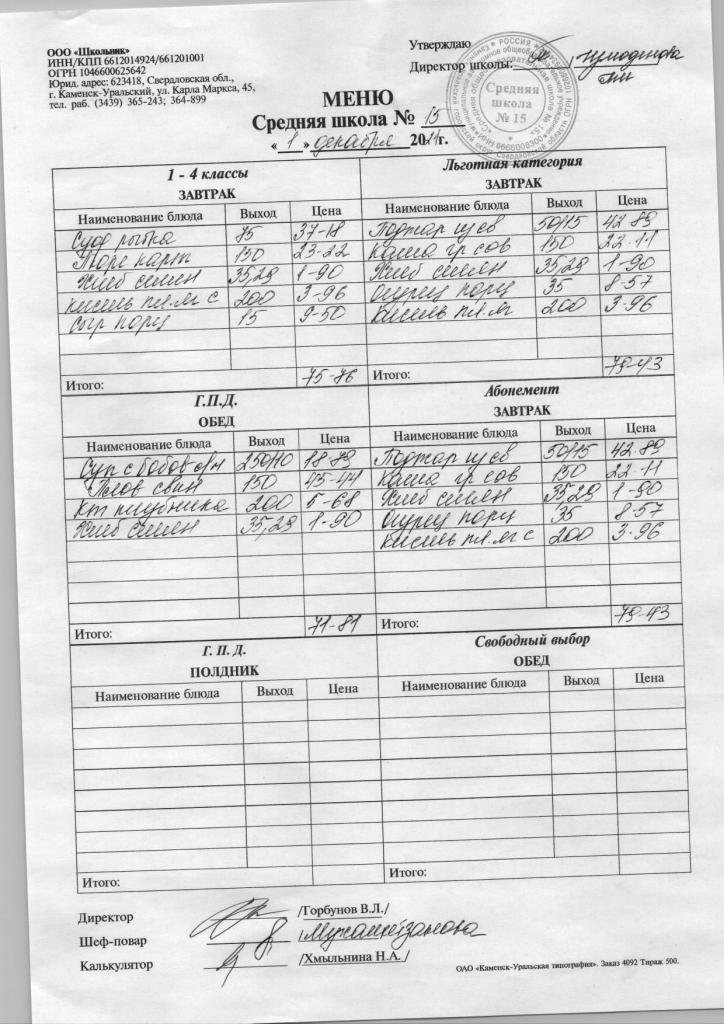 ООО «Школьник»
ИНН/КПП 6612014924/661201001
ОГРН 1046600625642
Юрид. адрес: 623418, Свердловская обл.,
г. Каменск-Уральский, ул. Карла Маркса, 45,
тел. раб. (3439) 365-243; 364-899
Утверждаю
Директор школы:
Средняя
школа
№ 15
МЕНЮ
Средняя школа № 15
« 1 » декабря 2021г.
1 - 4 классы
ЗАВТРАК
Наименование блюда Выход Цена
Суфл рыбка 75 37-18
Пюре карт 150 23-22
Хлеб семен 35,29 1-90
Кисель пл.яг с 200 3-96
Сыр порц 15 9-50
Итого: 75-76
Льготная категория
ЗАВТРАК
Наименование блюда Выход Цена
Поджар из св 50/15 42-89
Каша гр сов 150 22-11
Хлеб семен 35,29 1-90
Огурец порц 35 8-57
Кисель пл.яг 200 3-96
Итого: 79-43
Г.П.Д.
ОБЕД
Наименование блюда Выход Цена
Суп с бобов свин 250/10 18-79
Плов свин 150 45-44
Кт клубника 200 5-68
Хлеб семен 35,29 1-90
Итого: 71-81
Абонемент
ЗАВТРАК
Наименование блюда Выход Цена
Поджар из св 50/15 42-89
Каша гр сов 150 22-11
Хлеб семен 35,29 1-90
Огурец порц 35 8-57
Кисель пл.яг с 200 3-96
Итого: 79-43
Г. П. Д.
ПОЛДНИК
Наименование блюда Выход Цена
Итого:
Свободный выбор
ОБЕД
Наименование блюда Выход Цена
Итого:
Директор /Горбунов В.Л./
Шеф-повар
Калькулятор /Хмыльнина Н.А. /
ОАО «Каменск-Уральская типография». Заказ 4092 Тираж 500.